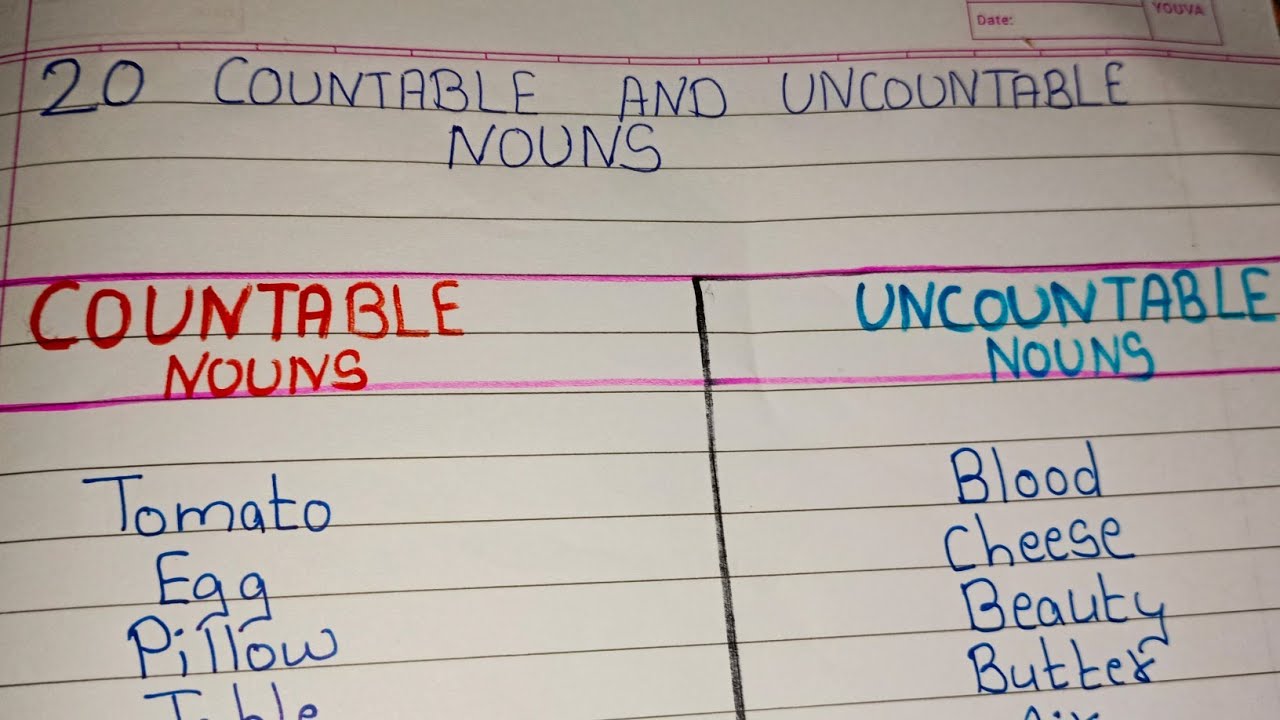 Date:
YOUVA
20 COUNTABLE AND UNCOUNTABLE
NOUNS
COUNTABLE
NOUNS
UNCOUNTABLE
NOUNS
Tomato
Egg
Pillow
Table
Blood
Cheese
Beauty
Butter